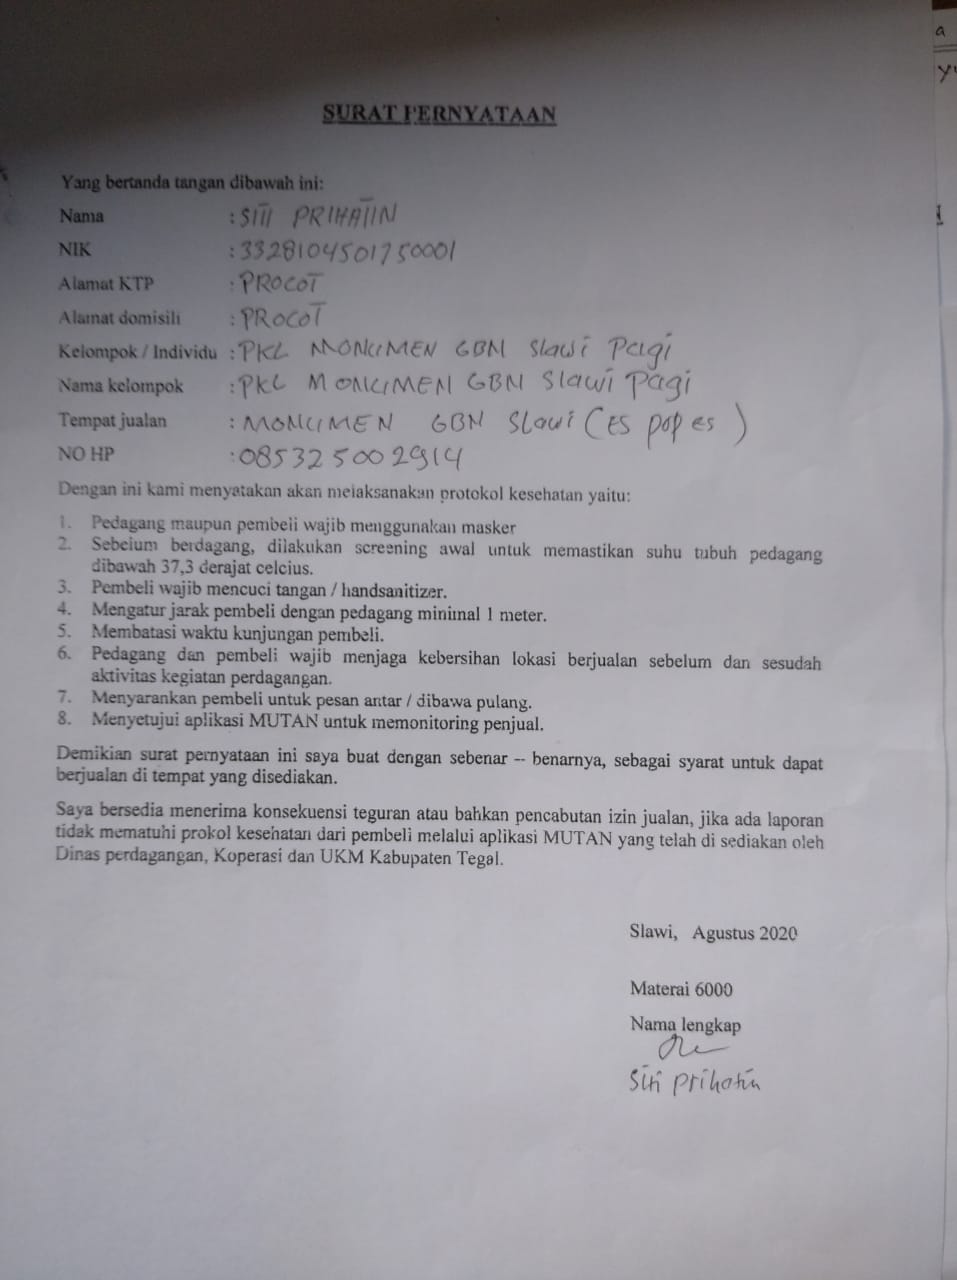 SURAT PERNYATAAN
Yang bertanda tangan dibawah ini:
Nama : SITI PRIHATIN
NIK : 3328104501750001
Alamat KTP : PROCOT
Alamat domisili : PROCOT
Kelompok / Individu : PKL MONUMEN GBN Slawi Pagi
Nama kelompok : PKL MONUMEN GBN Slawi Pagi
Tempat jualan : MONUMEN GBN Slawi (ES pop es)
NO HP : 085325002914
Dengan ini kami menyatakan akan melaksanakan protokol kesehatan yaitu:
1. Pedagang maupun pembeli wajib menggunakan masker
2. Sebelum berdagang, dilakukan screening awal untuk memastikan suhu tubuh pedagang
dibawah 37,3 derajat celcius.
3. Pembeli wajib mencuci tangan / handsanitizer.
4. Mengatur jarak pembeli dengan pedagang minimal 1 meter.
5. Membatasi waktu kunjungan pembeli.
6. Pedagang dan pembeli wajib menjaga kebersihan lokasi berjualan sebelum dan sesudah
aktivitas kegiatan perdagangan.
7. Menyarankan pembeli untuk pesan antar / dibawa pulang.
8. Menyetujui aplikasi MUTAN untuk memonitoring penjual.
Demikian surat pernyataan ini saya buat dengan sebenar -- benarnya, sebagai syarat untuk dapat
berjualan di tempat yang disediakan.
Saya bersedia menerima konsekuensi teguran atau bahkan pencabutan izin jualan, jika ada laporan
tidak mematuhi prokol kesehatan dari pembeli melalui aplikasi MUTAN yang telah di sediakan oleh
Dinas perdagangan, Koperasi dan UKM Kabupaten Tegal.
Slawi, Agustus 2020
Materai 6000
Nama lengkap
Siti prihatin